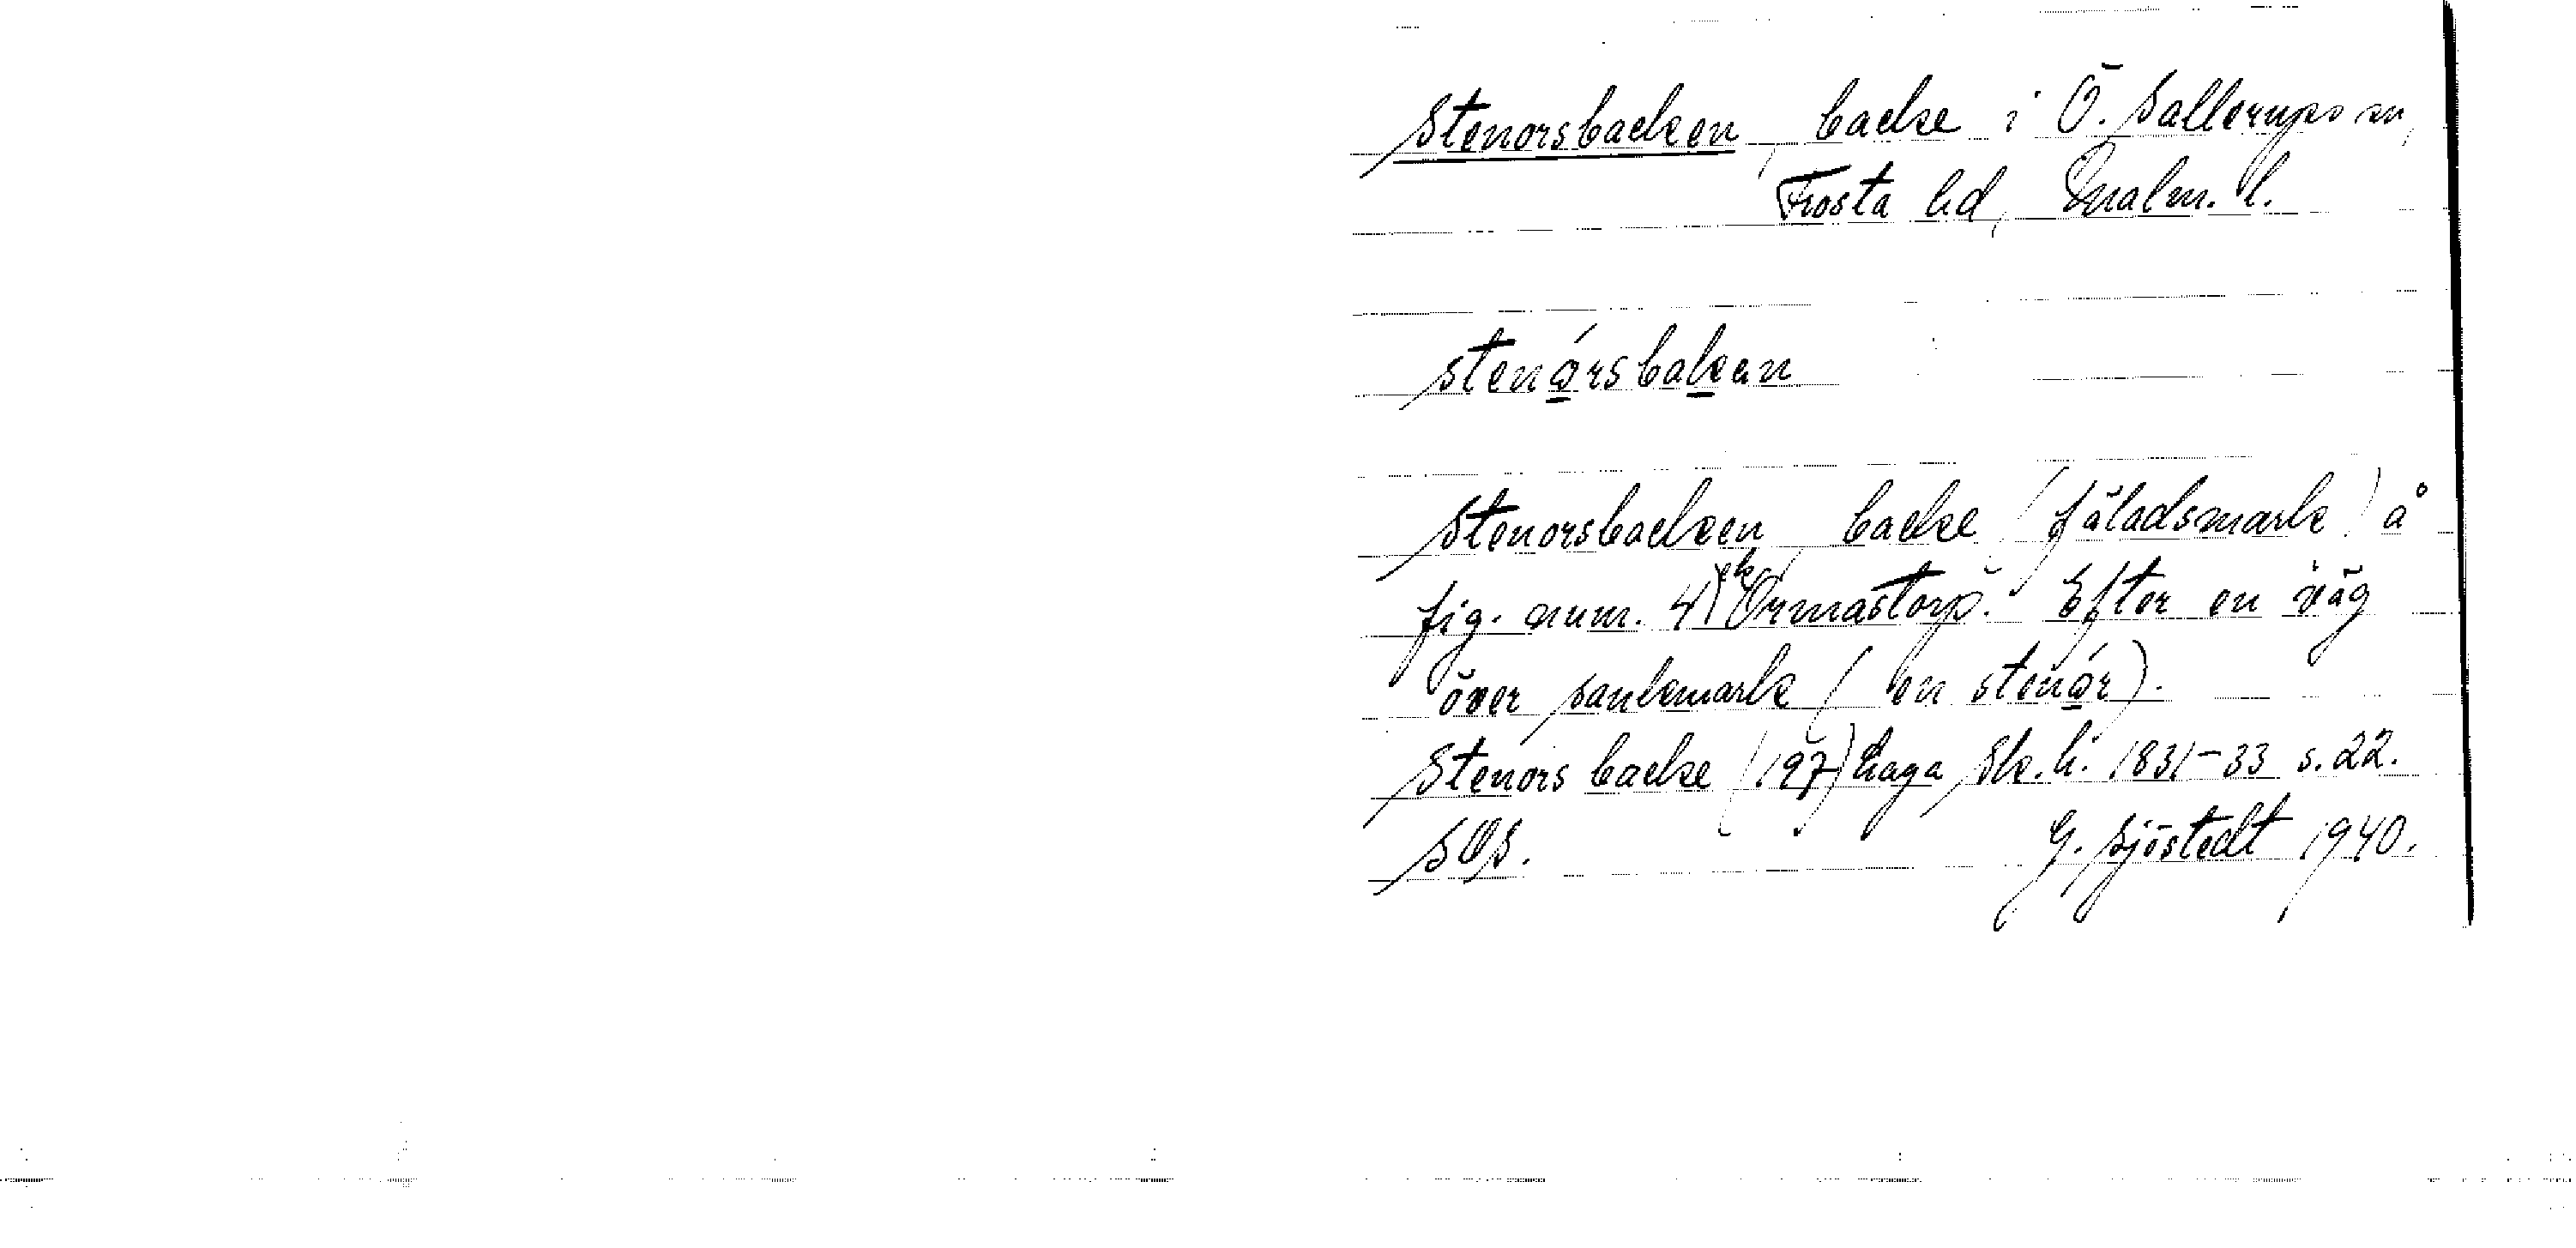 Stenorsbacken, backe i Ö. Sallerups sn,
Frosta hd, Malm. l.
stenórsbakan
Stenorsbacken, backe (fäladsmark) å
fig. num. 4 ek Ormastorp. Efter en väg
över sankmark (en stenór).
Stenors backe (197) haga, Sk. h. 1831-33 s. 22.
SOS. G. Sjöstedt 1940.